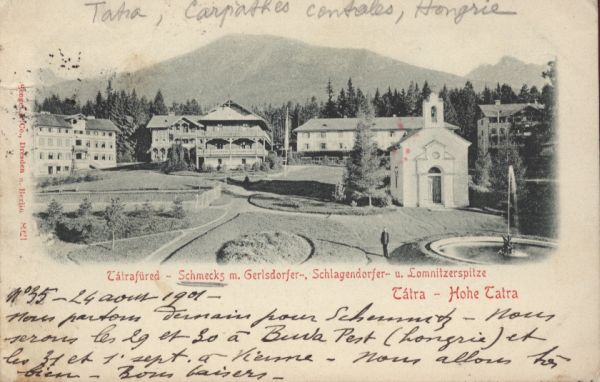 Tatra, Carpathes centrales, Hongrie
Stengel & Co., Dresden u. Berlin
Tátrafüred - Schmecks m. Gerlsdorfer-, Schlagendorfer- u. Lomnitzerspitze
Tátra - Hohe Tatra
Nº 35 - 24 aout 1901 -
Nous partons demain pour Schemnitz - Nous
serons les 29 et 30 à Buda Pest (hongrie) et
les 31 et 1º sept. à Vienne - Nous allons très
bien - Bons baisers -